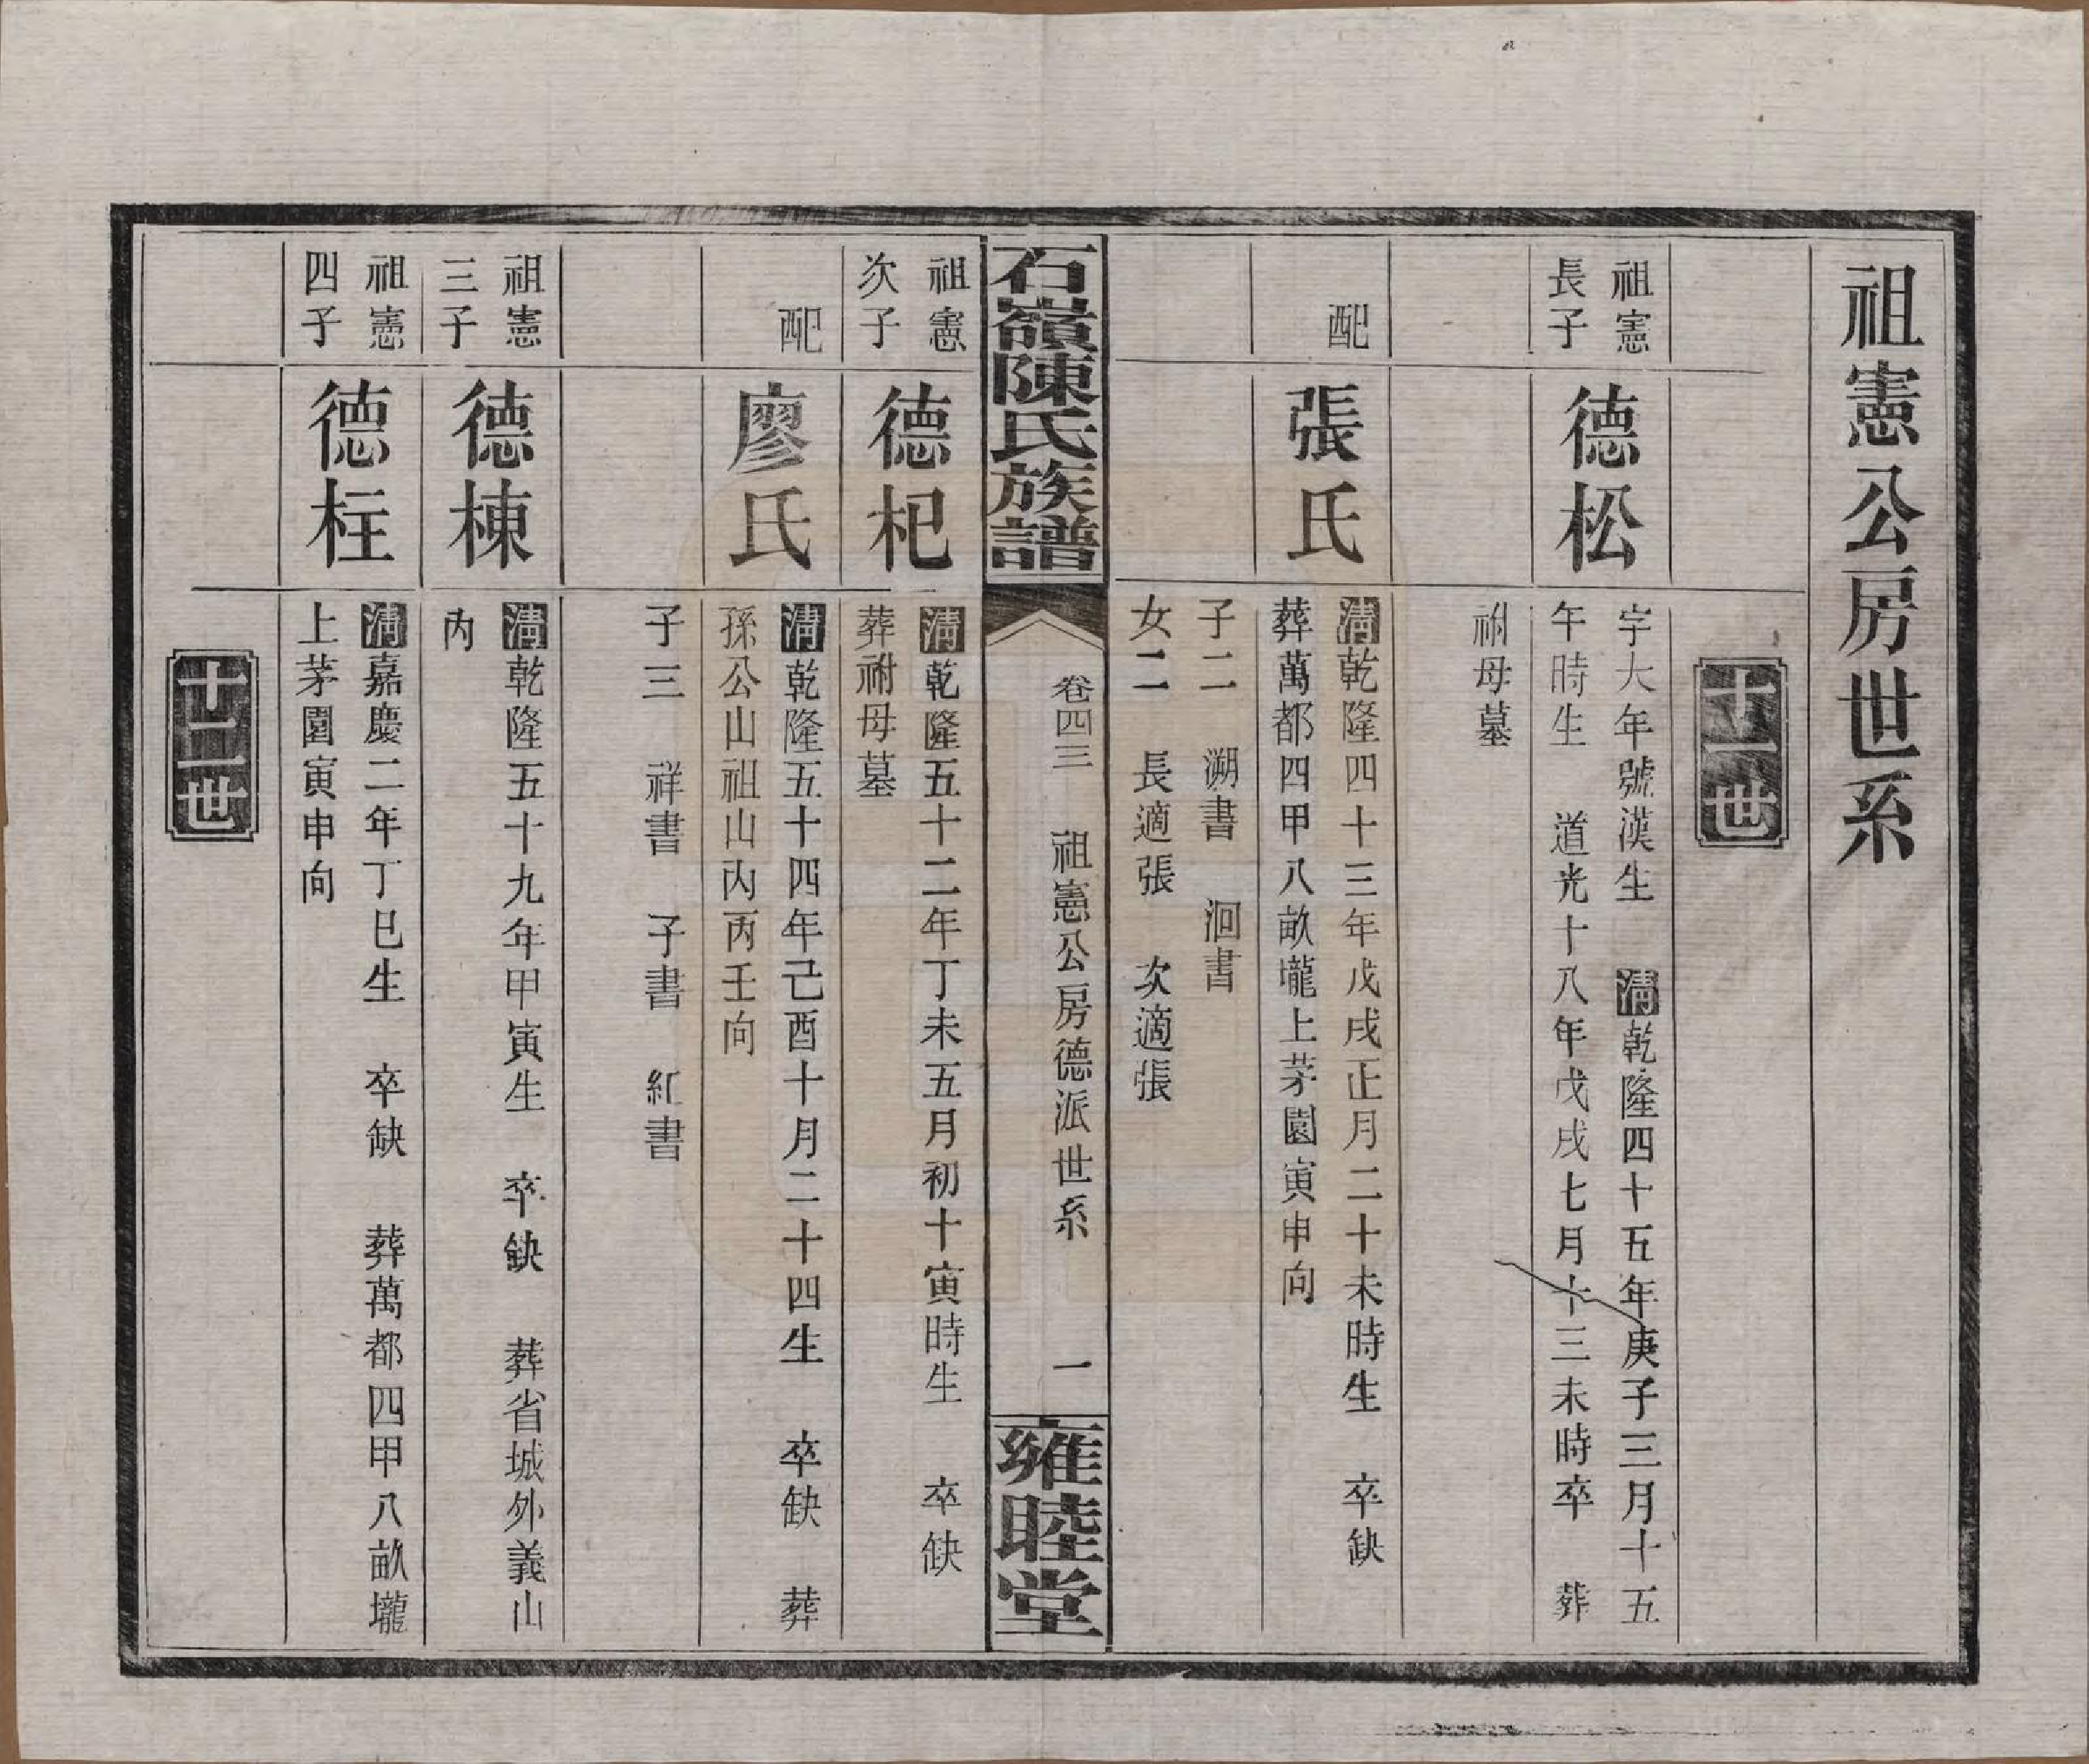 祖憲公房世系
十一世
祖憲
長子
德松
字大年號漢生　清乾隆四十五年庚子三月十五
午時生　道光十八年戊戌七月十三未時卒　葬
祔母墓
配
張氏
清乾隆四十三年戊戌正月二十未時生　卒缺
葬萬都四甲八畝壠上茅園寅申向
子二　溯書　洄書
女二　長適張　次適張
石嶺陳氏族譜
卷四三　祖憲公房德派世系　一
雍睦堂
祖憲
次子
德杞
清乾隆五十二年丁未五月初十寅時生　卒缺
葬祔母墓
配
廖氏
清乾隆五十四年己酉十月二十四生　卒缺　葬
孫公山祖山內丙壬向
子三　祥書　子書　紅書
祖憲
三子
德棟
清乾隆五十九年甲寅生　卒缺　葬省城外義山
內
祖憲
四子
德柱
清嘉慶二年丁巳生　卒缺　葬萬都四甲八畝壠
上茅園寅申向
十二世